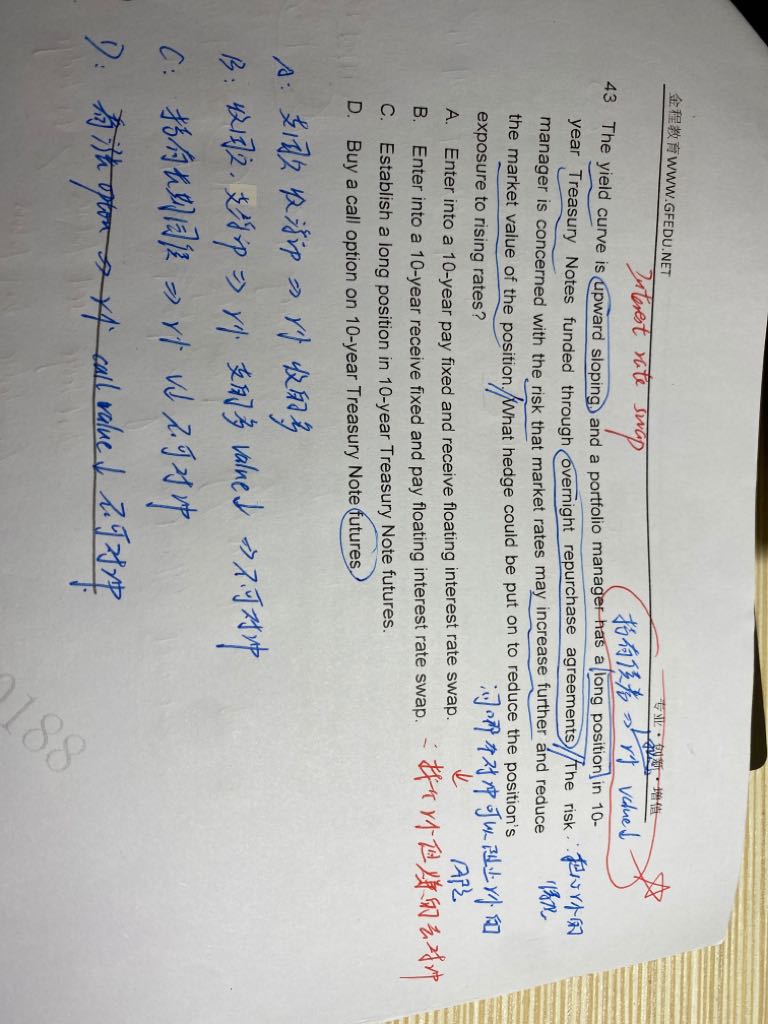 金程教育WWW.GFEDU.NET
专业·创新·增值
Interest rate swap
持有债券 => r↑ value↓
43 The yield curve is upward sloping, and a portfolio manager has a long position in 10-
year Treasury Notes funded through overnight repurchase agreements. The risk
manager is concerned with the risk that market rates may increase further and reduce
the market value of the position. What hedge could be put on to reduce the position's
exposure to rising rates?
担心r↑的
情况
问哪个对冲可以阻止r↑的
风险
A. Enter into a 10-year pay fixed and receive floating interest rate swap.
B. Enter into a 10-year receive fixed and pay floating interest rate swap.
C. Establish a long position in 10-year Treasury Note futures.
D. Buy a call option on 10-year Treasury Note futures.
∴找个r↑但赚的去对冲
A: 支固 收浮动 => r↑ 收的多
B: 收固定, 支浮动 => r↑ 支的多 value↓ => 不可对冲
C: 持有长期国债 => r↑ V↓ 不可对冲
D: option => r↑ call value↓ 不可对冲
0188